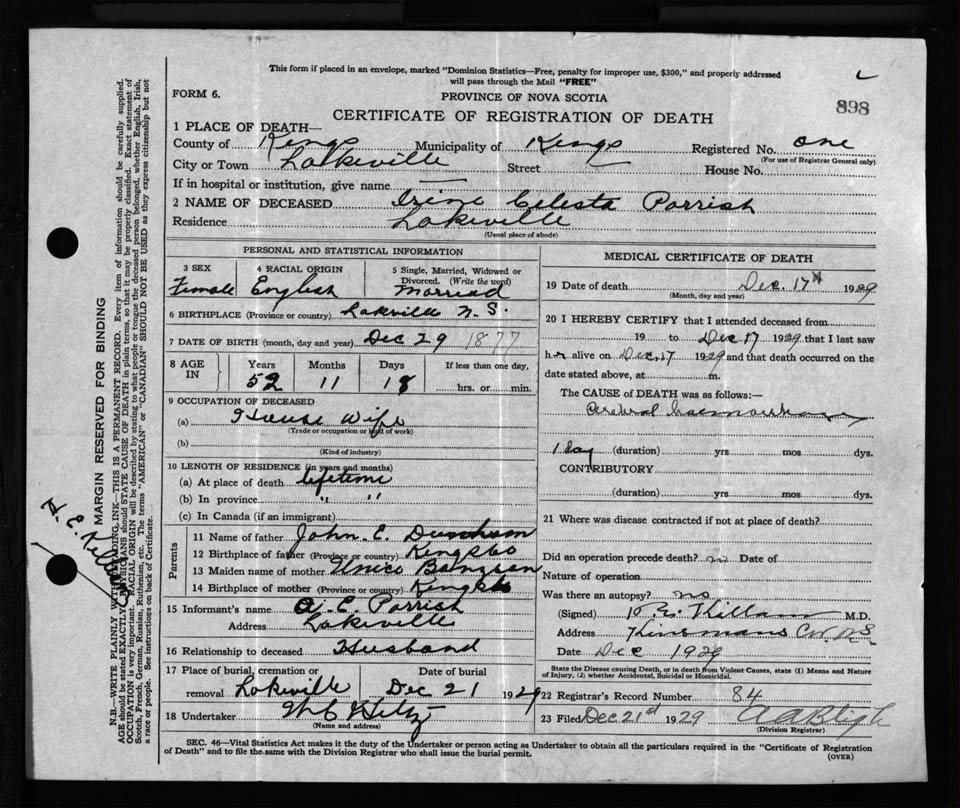 This form if placed in an envelope, marked "Dominion Statistics—Free, penalty for improper use, $300," and properly addressed
will pass through the Mail "FREE"
FORM 6.
PROVINCE OF NOVA SCOTIA
898
CERTIFICATE OF REGISTRATION OF DEATH
1 PLACE OF DEATH—
County of Kings Municipality of Kings Registered No. one
(For use of Registrar General only)
City or Town Lakeville Street House No.
If in hospital or institution, give name —
2 NAME OF DECEASED Irine Celesta Parrish
Residence Lakeville
(Usual place of abode)
PERSONAL AND STATISTICAL INFORMATION
3 SEX Female
4 RACIAL ORIGIN English
5 Single, Married, Widowed or
Divorced. (Write the word)
Married
6 BIRTHPLACE (Province or country) Lakville N.S.
7 DATE OF BIRTH (month, day and year) Dec 29 1877
8 AGE IN Years Months Days If less than one day,
52 11 18 hrs. or min.
9 OCCUPATION OF DECEASED
(a) House Wife
(Trade or occupation or kind of work)
(b)
(Kind of industry)
10 LENGTH OF RESIDENCE (in years and months)
(a) At place of death lifetime
(b) In province " "
(c) In Canada (if an immigrant)
Parents
11 Name of father John E.
12 Birthplace of father (Province or country) Kingsbo
13 Maiden name of mother
14 Birthplace of mother (Province or country)
15 Informant's name A. E. Parrish
Address Lakeville
16 Relationship to deceased Husband
17 Place of burial, cremation or removal Lakeville
Date of burial Dec 21 1929
18 Undertaker
(Name and address)
MEDICAL CERTIFICATE OF DEATH
19 Date of death Dec. 17th 1929
(Month, day and year)
20 I HEREBY CERTIFY that I attended deceased from
19 to Dec 17 1929 that I last saw
her alive on Dec. 17 1929 and that death occurred on the
date stated above, at m.
The CAUSE of DEATH was as follows:—
Cerebral haemorrhage
1 day (duration) yrs mos dys.
CONTRIBUTORY
(duration) yrs. mos. dys.
21 Where was disease contracted if not at place of death?
Did an operation precede death? no Date of
Nature of operation
Was there an autopsy? no
(Signed) Killam M.D.
Address Kinsmans Cor NS
Date Dec 1929
State the Disease causing Death, or in death from Violent Causes, state (1) Means and Nature
of Injury, (2) whether Accidental, Suicidal or Homicidal.
22 Registrar's Record Number 84
23 Filed Dec 21st 1929 A A Bligh
(Division Registrar)
SEC. 46—Vital Statistics Act makes it the duty of the Undertaker or person acting as Undertaker to obtain all the particulars required in the "Certificate of Registration
of Death" and to file the same with the Division Registrar who shall issue the burial permit.
(OVER)
MARGIN RESERVED FOR BINDING
N.B.—WRITE PLAINLY WITH UNFADING INK—THIS IS A PERMANENT RECORD. Every item of information should be carefully supplied.
AGE should be stated EXACTLY. PHYSICIANS should STATE CAUSE OF DEATH in plain terms, so that it may be properly classified. Exact statement of
OCCUPATION is very important. RACIAL ORIGIN will be described by stating to what people or tongue the deceased person belonged, whether English, Irish,
Scotch, French, German, Russian, Ruthenian, etc. The terms "AMERICAN" or "CANADIAN" SHOULD NOT BE USED as they express citizenship but not
a race or people. See instructions on back of Certificate.